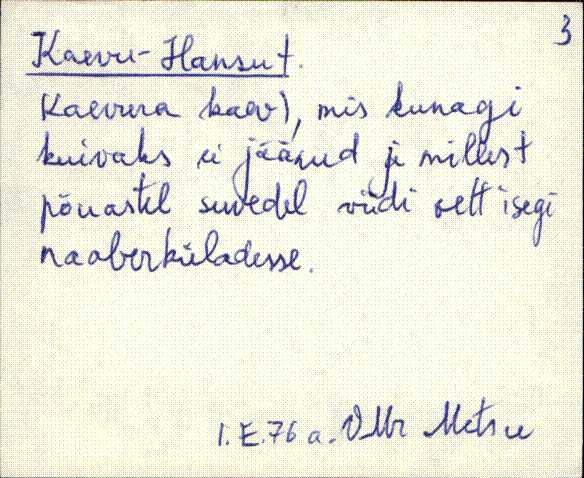 3
Kaevu-Hansu t.
Kaevura kaev), mis kunagi
kuivaks ei jäänud ja millest
põuastel suvedel viidi vett isegi
naaberküladesse.
I.E.76 a. Metsu